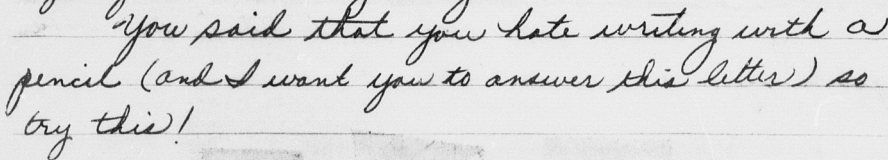 You said that you hate writing with a
pencil (and I want you to answer this letter) so
try this!